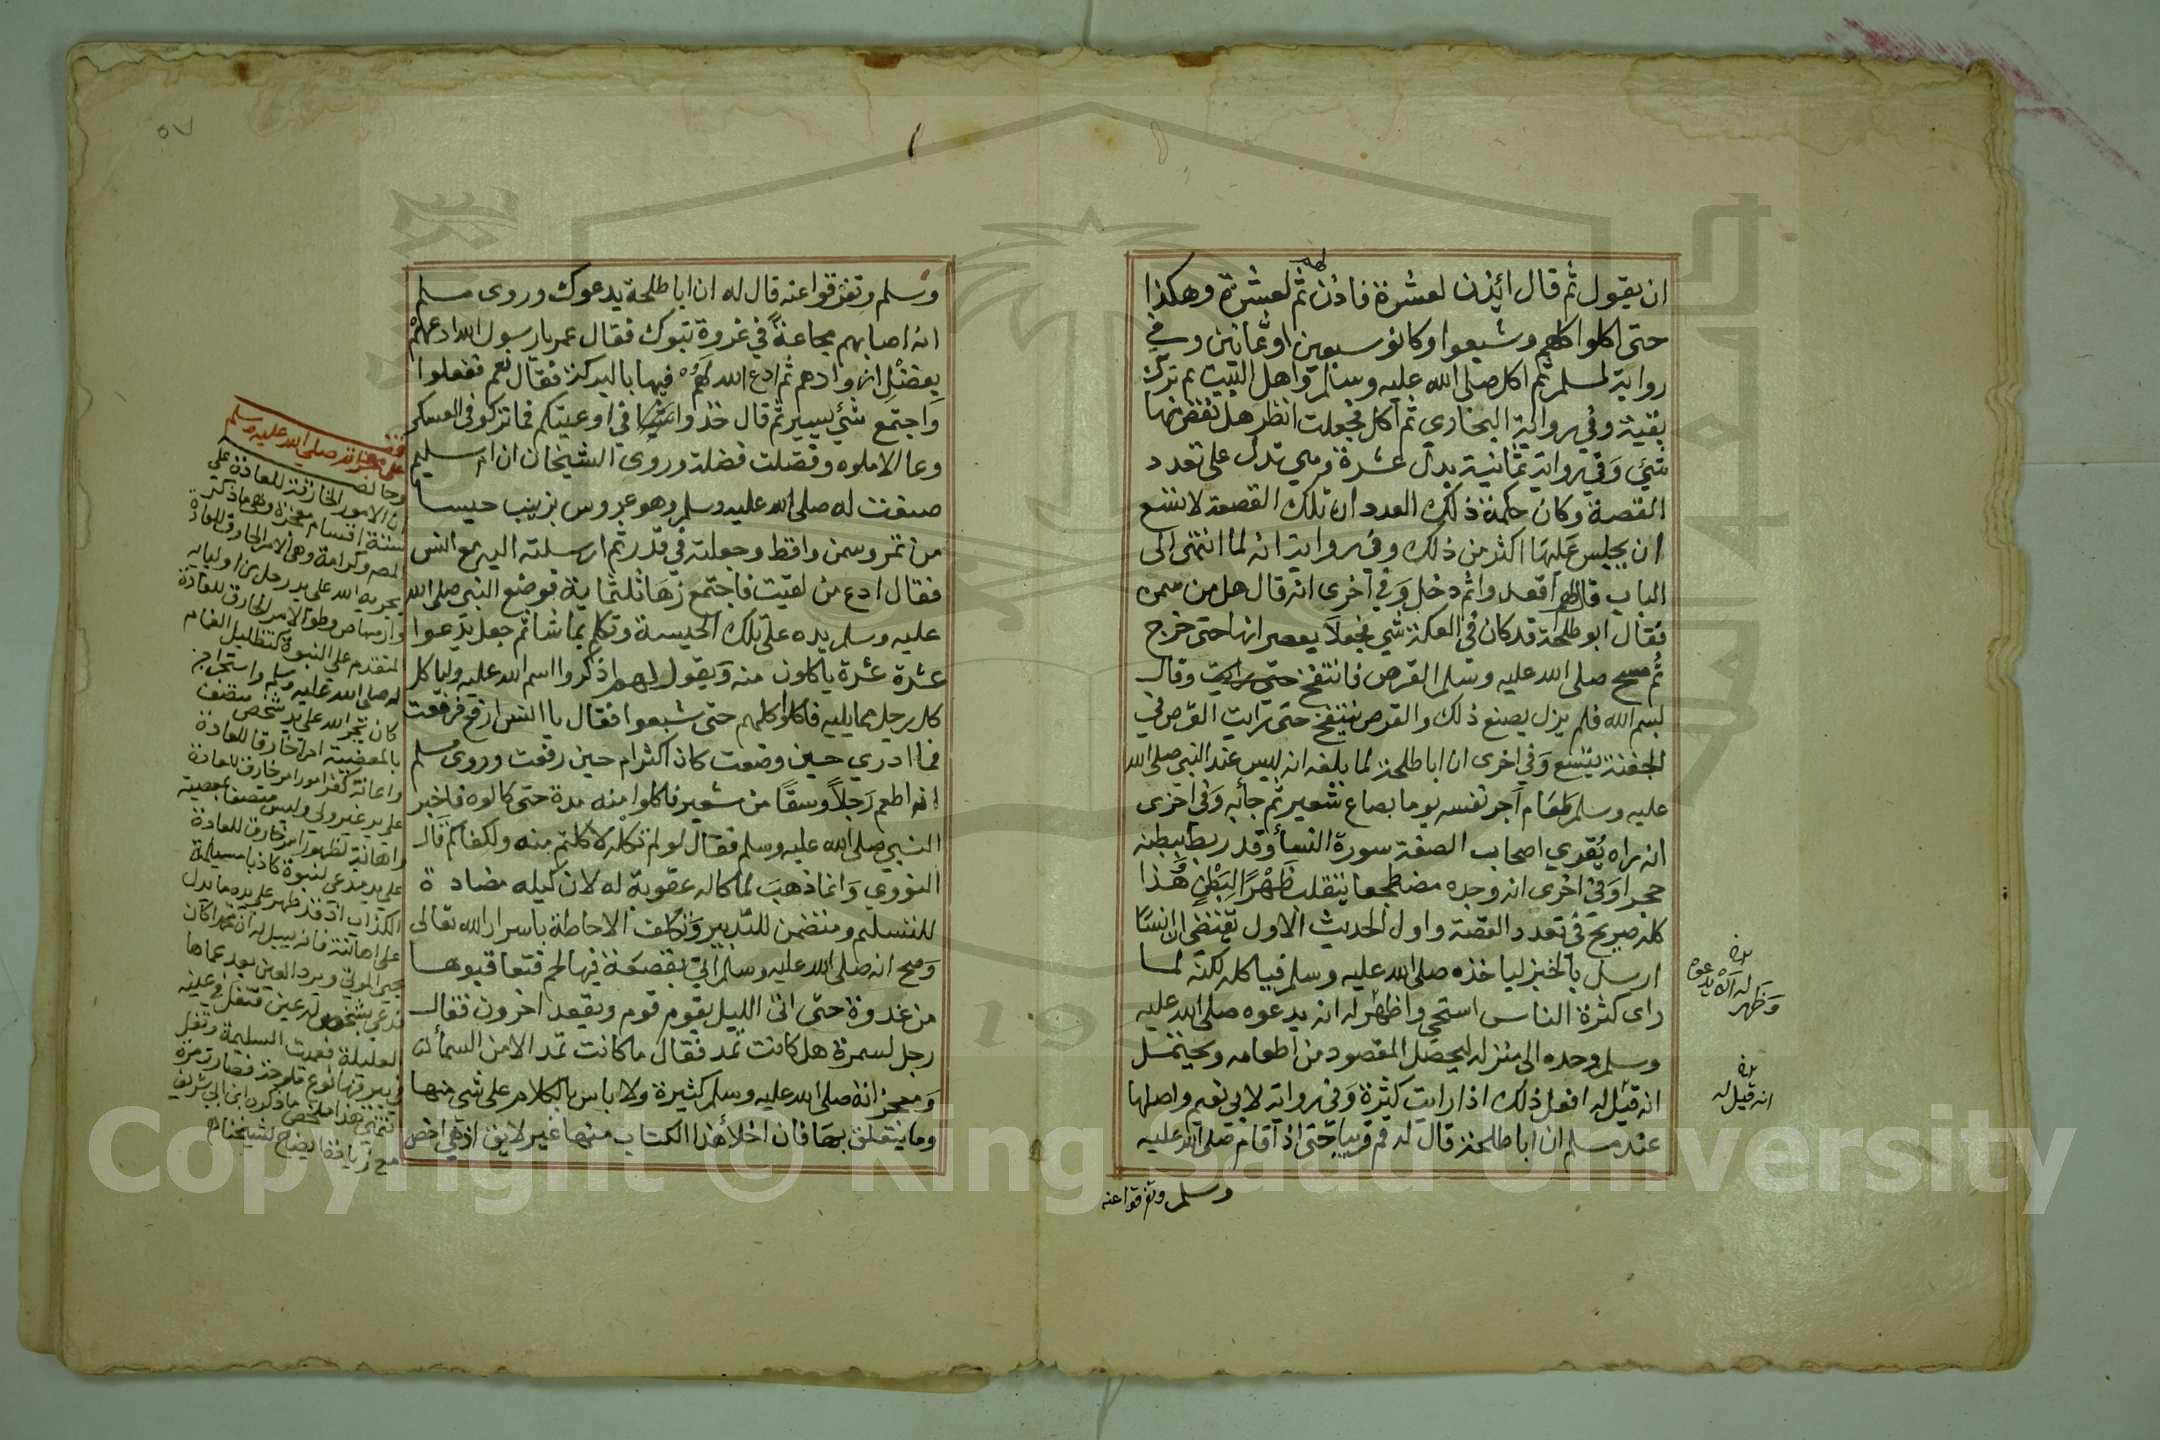 ان يقول ثم قال ائذن لعشرة فاذن لهم ثم لعشرة وهكذا
حتى اكلوا كلهم وشبعوا وكانوا سبعين او ثمانين وفي
رواية لمسلم ثم اكل صلى الله عليه وسلم واهل البيت ثم ترك
بقية وفي رواية البخاري ثم اكل فجعلت انظر هل نقض منها
شيء وفي رواية ثمانية بدل عشرة وهي تدل على تعدد
القصة وكان حكمة ذلك العدد ان تلك القصعة لا تتسع
ان يجلس عليها اكثر من ذلك وفي رواية انه لما انتهى الى
الباب قال لهم اقعدوا ثم دخل وفي اخرى انه قال هل من سمن
فقال ابو طلحة قد كان في العكة شيء فجعلا يعصرانها حتى خرج
ثم مسح صلى الله عليه وسلم القرص فانتفخ حتى رايت وقال
بسم الله فلم يزل يصنع ذلك والقرص ينتفخ حتى رايت القرص في
الجفنة يتسع وفي اخرى ان ابا طلحة لما بلغه انه ليس عند النبي صلى الله
عليه وسلم طعام آجر نفسه يوما بصاع شعير ثم جائه وفي اخرى
انه راه يقري اصحاب الصفة سورة النسا وقد ربط ببطنه
حجرا وفي اخرى انه وجده مضطجعا يتقلب ظهرا لبطن وهذا
كله صريح في تعدد القصة واول الحديث الاول تقتضي ان انسا
ارسل بالخبز لياخذه صلى الله عليه وسلم فياكله لكنه لما
راى كثرة الناس استحي واظهر له انه يدعوه صلى الله عليه
وسلم وحده الى منزله ليحصل المقصود من اطعامه ويحتمل
انه قيل له افعل ذلك اذا رايت كثرة وفي رواية لابي نعيم واصلها
عند مسلم ان ابا طلحة قال له قم قريبا حتى اذا قام صلى الله عليه
وسلم وتفرقوا عنه
وظهر له ان يدعوه
انه قيل له
٥٧
وسلم وتفرقوا عنه قال له ان ابا طلحة يدعوك وروى مسلم
انه اصابهم مجاعة في غزوة تبوك فقال عمر يا رسول الله ادعهم
بفضل ازوادهم ثم ادع الله لهم فيها بالبركة فقال نعم ففعلوا
واجتمع شيء يسير ثم قال خذوا في اوعيتكم فما تركوا في العسكر
وعا الا ملوه وفضلت فضلة وروى الشيخان ان ام سليم
صنعت له صلى الله عليه وسلم وهو عروس بزينب حيسا
من تمر وسمن واقط وجعلته في قدر ثم ارسلته اليه مع انس
فقال ادع من لقيت فاجتمع زها ثلثماية فوضع النبي صلى الله
عليه وسلم يده على تلك الحيسة وتكلم بما شا ثم جعل يدعوا
عشرة عشرة ياكلون منه ويقول لهم اذكروا اسم الله عليه ولياكل
كل رجل مما يليه فاكلوا كلهم حتى شبعوا فقال يا انس ارفع فرفعت
فما ادري حين وضعت كان اكثر ام حين رفعت وروى مسلم
انه اطعم رجلا وسقا من شعير فاكلوا منه مدة حتى كالوه فاخبر
النبي صلى الله عليه وسلم فقال لو لم تكله لاكلتم منه ولكفاكم قال
النووي وانما ذهب لما كاله عقوبة له لان كيله مضادة
للتسليم ومتضمن للتدبير وتكلف الاحاطة باسرار الله تعالى
وصح انه صلى الله عليه وسلم اتي بقصعة فيها لحم فتعاقبوها
من غدوة حتى الى الليل يقوم قوم ويقعد اخرون فقال
رجل لسمرة هل كانت تمد فقال ما كانت تمد الا من السما
ومعجزاته صلى الله عليه وسلم كثيرة ولا باس بالكلام على شي منها
وما يتعلق بها فان اخلا هذا الكتاب منها غير لايق اذ هي اخص
صلى الله عليه وسلم
ان الامور الخارقة للعادة على
ستة اقسام معجزة وهي ما ذكر
وكرامة وهي الامر الخارق للعادة
يجريه الله على يد رجل من اوليايه
وارهاص وهو الامر الخارق للعادة
المتقدم على النبوة كتظليل الغمام
له صلى الله عليه وسلم واستدراج
كان يجري الله على يد شخص متصف
بالمعصية امرا خارقا للعادة
واعانة كظهور امر خارق للعادة
على يد غير ولي وليس متصفا بمعصية
واهانة كظهور امر خارق للعادة
على يد مدعي نبوة كاذبا مسيلمة
الكذاب اذ قد ظهر على يده ما يدل
على اهانته